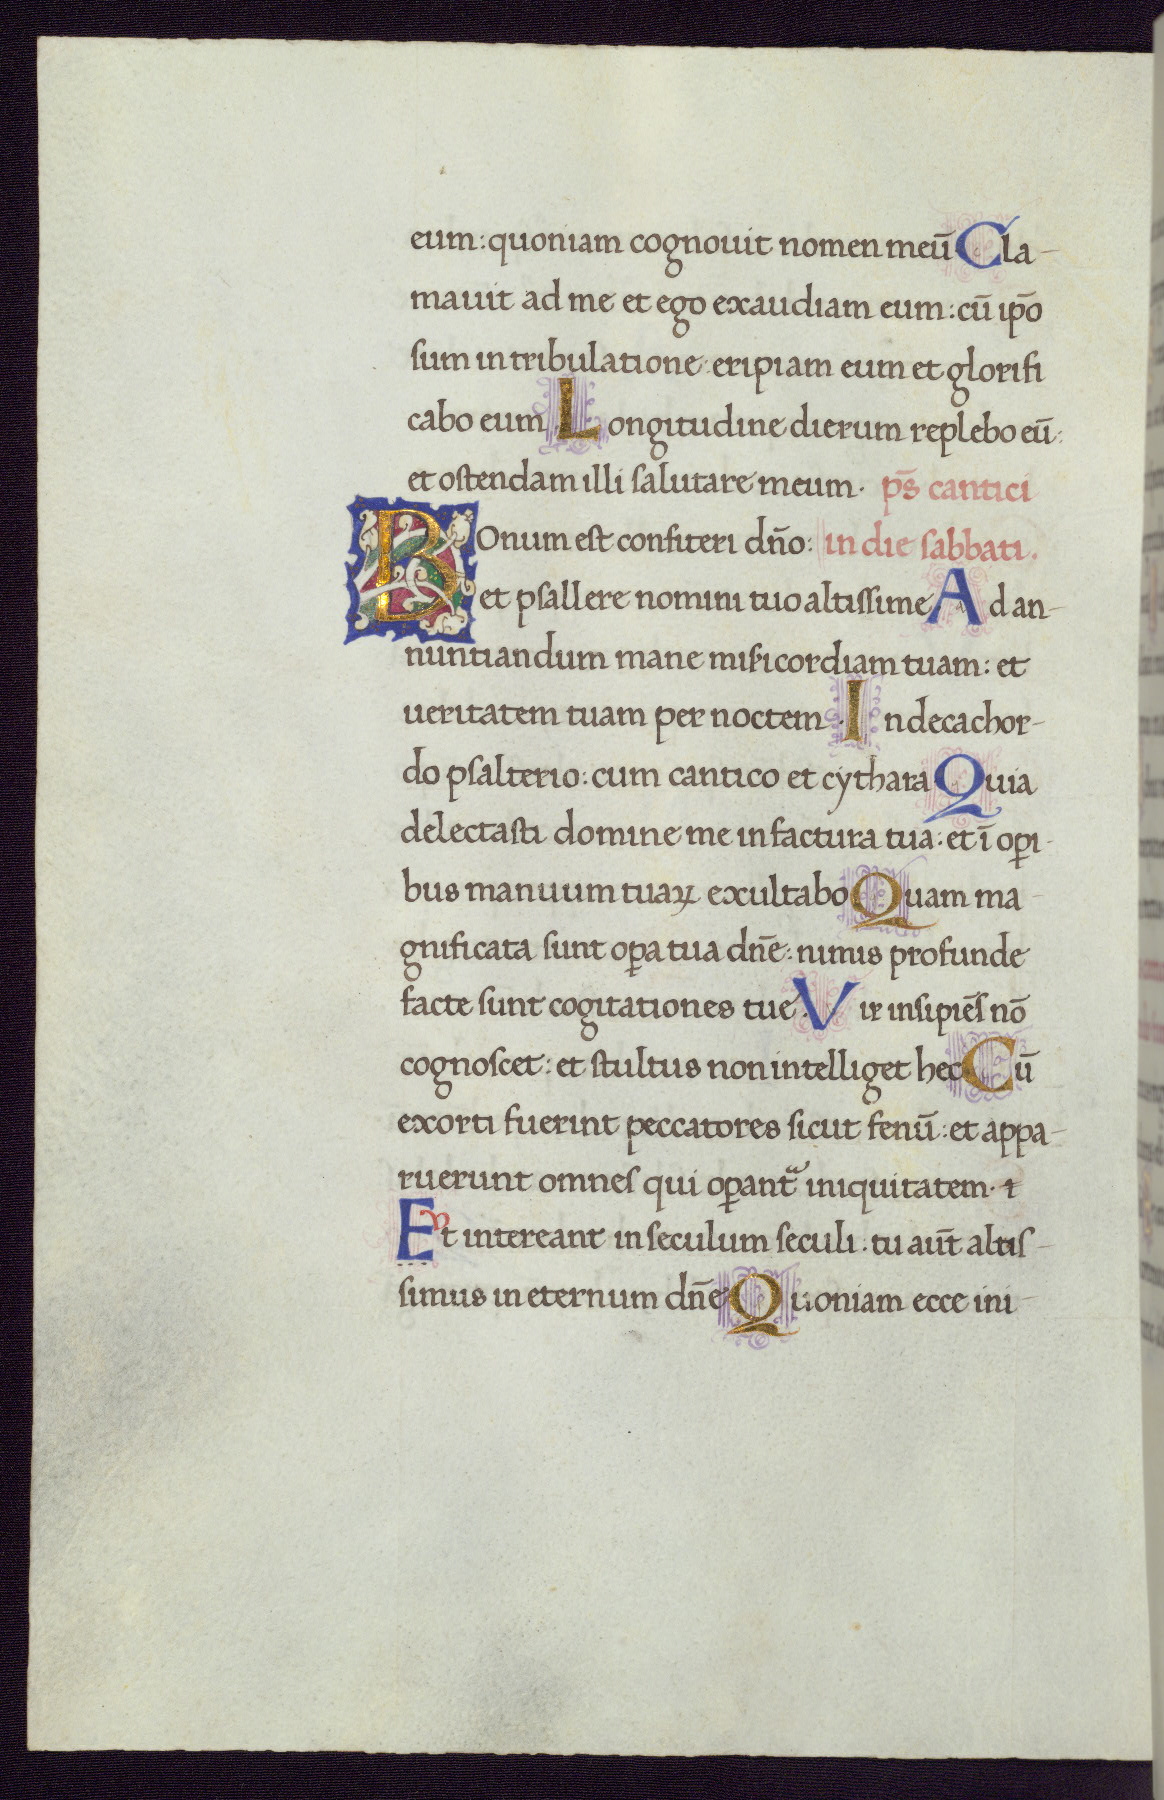 eum: quoniam cognouit nomen meū Cla-
mauit ad me et ego exaudiam eum: cū ip̄o
sum in tribulatione: eripiam eum et glorifi
cabo eum Longitudine dierum replebo eū:
et ostendam illi salutare meum. ps̄ cantici
BOnum est confiteri dn̄o: in die sabbati.
et psallere nomini tuo altissime Ad an-
nuntiandum mane misicordiam tuam: et
ueritatem tuam per noctem. In decachor-
do psalterio: cum cantico et cythara Quia
delectasti domine me in factura tua: et ī op̱i-
bus manuum tuaꝝ exultabo Quam ma-
gnificata sunt oꝑa tua dn̄e: nimis profunde
facte sunt cogitationes tue. Vir insipiēs nō
cognoscet: et stultus non intelliget hec Cū
exorti fuerint peccatores sicut fenū: et appa-
ruerunt omnes qui oꝑantᷓ iniquitatem. 
Et intereant in seculum seculi. tu aūt altis-
simus in eternum dn̄e Quoniam ecce ini-